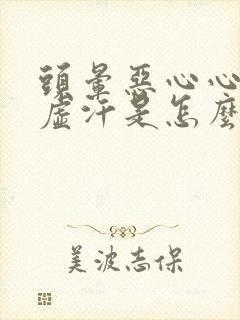 頭暈惡心心
虛汗是怎麼
美波志保